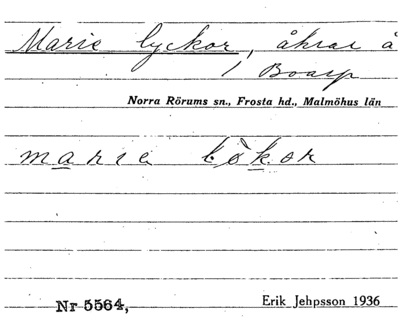 Marie lyckor, åkrar å
Boarp
Norra Rörums sn., Frosta hd., Malmöhus län
marie lökor
Nr 5564,
Erik Jehpsson 1936